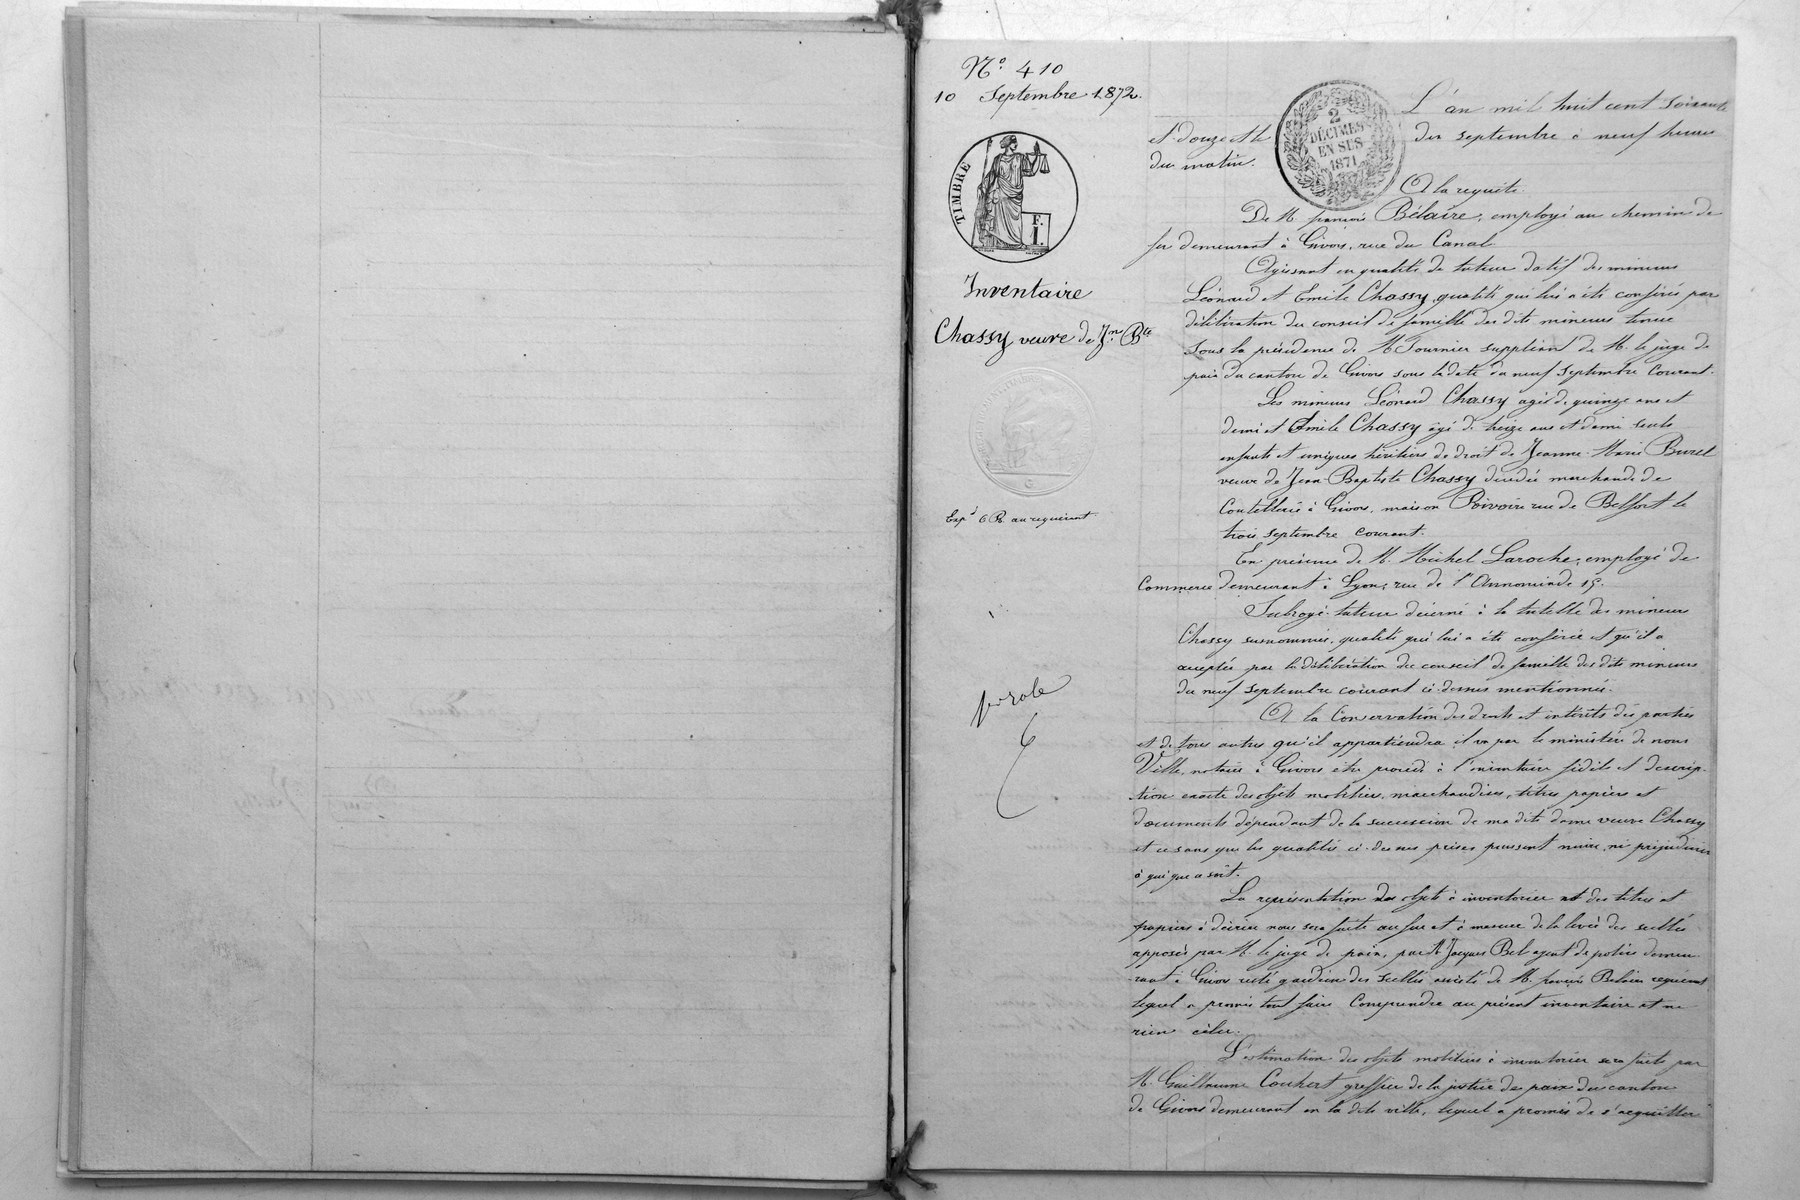 N.º 410
10 Septembre 1872.
TIMBRE
F.
I.
Inventaire
Chassy veuve de Jn Bte
Expé 6 R. au requérant
1er role
2
DÉCIMES
EN SUS
1871
L'an mil huit cent soixante
et douze et le dix septembre à neuf heures
du matin.
A la requête
De M. françois Bélaire, employé au chemin de
fer demeurant à Givors, rue du Canal
Agissant en qualité de tuteur datif des mineurs
Léonard et Emile Chassy, qualité qui lui a été conférée par
délibération du conseil de famille des dits mineurs tenue
sous la présidence de M. Tournier suppléant de M. le juge de
paix du canton de Givors sous la date du neuf septembre courant.
Les mineurs Léonard Chassy agé de quinze ans et
demi et Emile Chassy âgé de treize ans et demi seuls
enfants et uniques héritiers de droit de Jeanne-Marie Burel
veuve de Jean-Baptiste Chassy décédée marchande de
Coutellerie à Givors, maison Poivoire rue de Belfort le
trois septembre courant.
En présence de M. Michel Laroche, employé de
Commerce demeurant à Lyon, rue de l'Annonciade 15.
Subrogé-tuteur décerné à la tutelle des mineurs
Chassy susnommés, qualité qui lui a été conférée et qu'il a
acceptée par la délibération du conseil de famille des dits mineurs
du neuf septembre courant ci-dessus mentionnée.
A la Conservation des droits et intérêts des parties
et de tous autres qu'il appartiendra il va par le ministère de nous
Ville, notaire à Givors être procédé à l'inventaire fidèle et descrip-
tion exacte des objets mobiliers, marchandises, titres papiers et
documents dépendant de la succession de ma dite dame veuve Chassy
et ce sans que les qualités ci-dessus prises puissent nuire, ni préjudicier
à qui que ce soit.
La représentation des objets à inventorier et des titres et
papiers à décrire nous sera faite au fur et à mesure de la levée des scellés
apposés par M. le juge de paix, par M. Jacques Bel agent de police demeu-
rant à Givors resté gardien des scellés assisté de M. françois Bélaire requérant
lequel a promis tout faire Comprendre au présent inventaire et ne
rien céler.
L'estimation des objets mobiliers à inventorier sera faite par
M. Guillaume Couhert greffier de la justice de paix du canton
de Givors demeurant en la dite ville, lequel a promis de s'acquitter